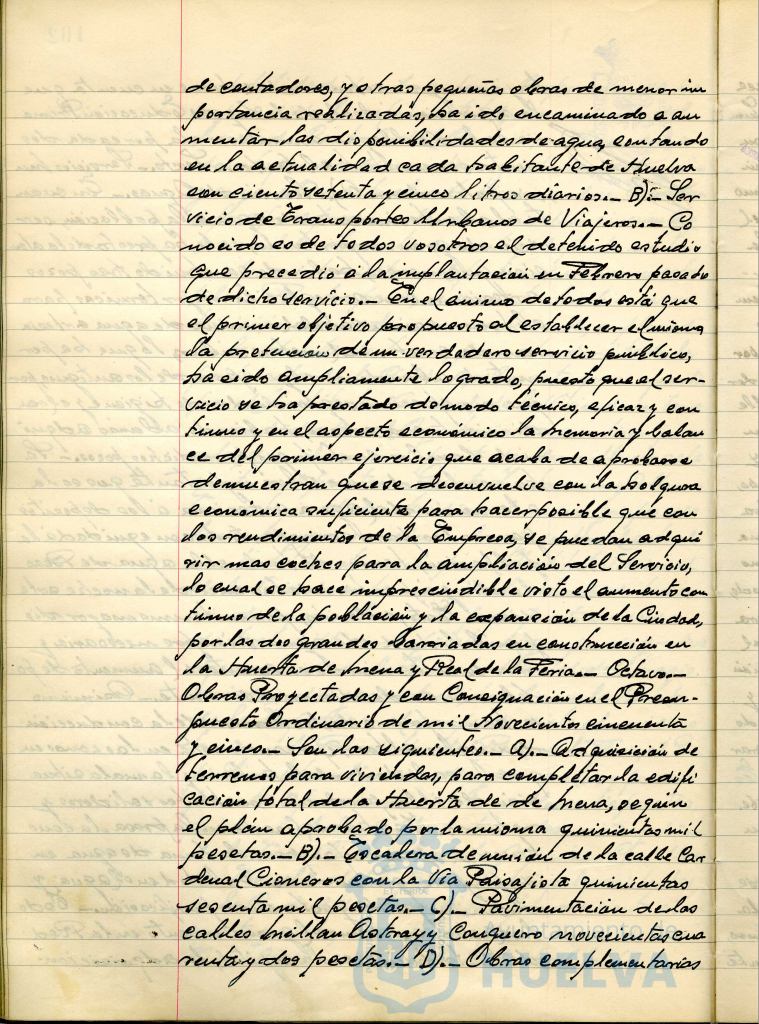 de contadores, y otras pequeñas obras de menor im
portancia realizadas, ha ido encaminado a au
mentar las disponibilidades de agua, contando
en la actualidad cada habitante de Huelva
con ciento setenta y cinco litros diarios.- B).- Ser
vicio de Transportes Urbanos de Viajeros.- Co
nocido es de todos vosotros el detenido estudio
que precedió a la implantación en Febrero pasado
de dicho servicio.- En el ánimo de todos está que
el primer objetivo propuesto al establecer el mismo
la pretensión de un verdadero servicio público,
ha sido ampliamente logrado, puesto que el ser-
vicio se ha prestado de modo técnico, eficaz y con
tinuo y en el aspecto económico la Memoria y balan
ce del primer ejercicio que acaba de aprobarse
demuestran que se desenvuelve con la holgura
económica suficiente para hacer posible que con
los rendimientos de la Empresa, se puedan adqui
rir mas coches para la ampliación del Servicio,
lo cual se hace imprescindible visto el aumento con
tinuo de la población y la expansión de la Ciudad,
por las dos grandes barriadas en construcción en
la Huerta de Mena y Real de la Feria.- Octavo.-
Obras Proyectadas y con Consignación en el Presu-
puesto Ordinario de mil Novecientos cincuenta
y cinco.- Son las siguientes.- A).- Adquisición de
terrenos para viviendas, para completar la edifi
cación total de la Huerta de de Mena, según
el plán aprobado por la misma quinientas mil
pesetas.- B).- Escalera de unión de la calle Car
denal Cisneros con la Vía Paisajista quinientas
sesenta mil pesetas.- C).- Pavimentación de las
calles Millan Astray y Conquero novecientas cua
renta y dos pesetas.- D).- Obras complementarias
HUELVA